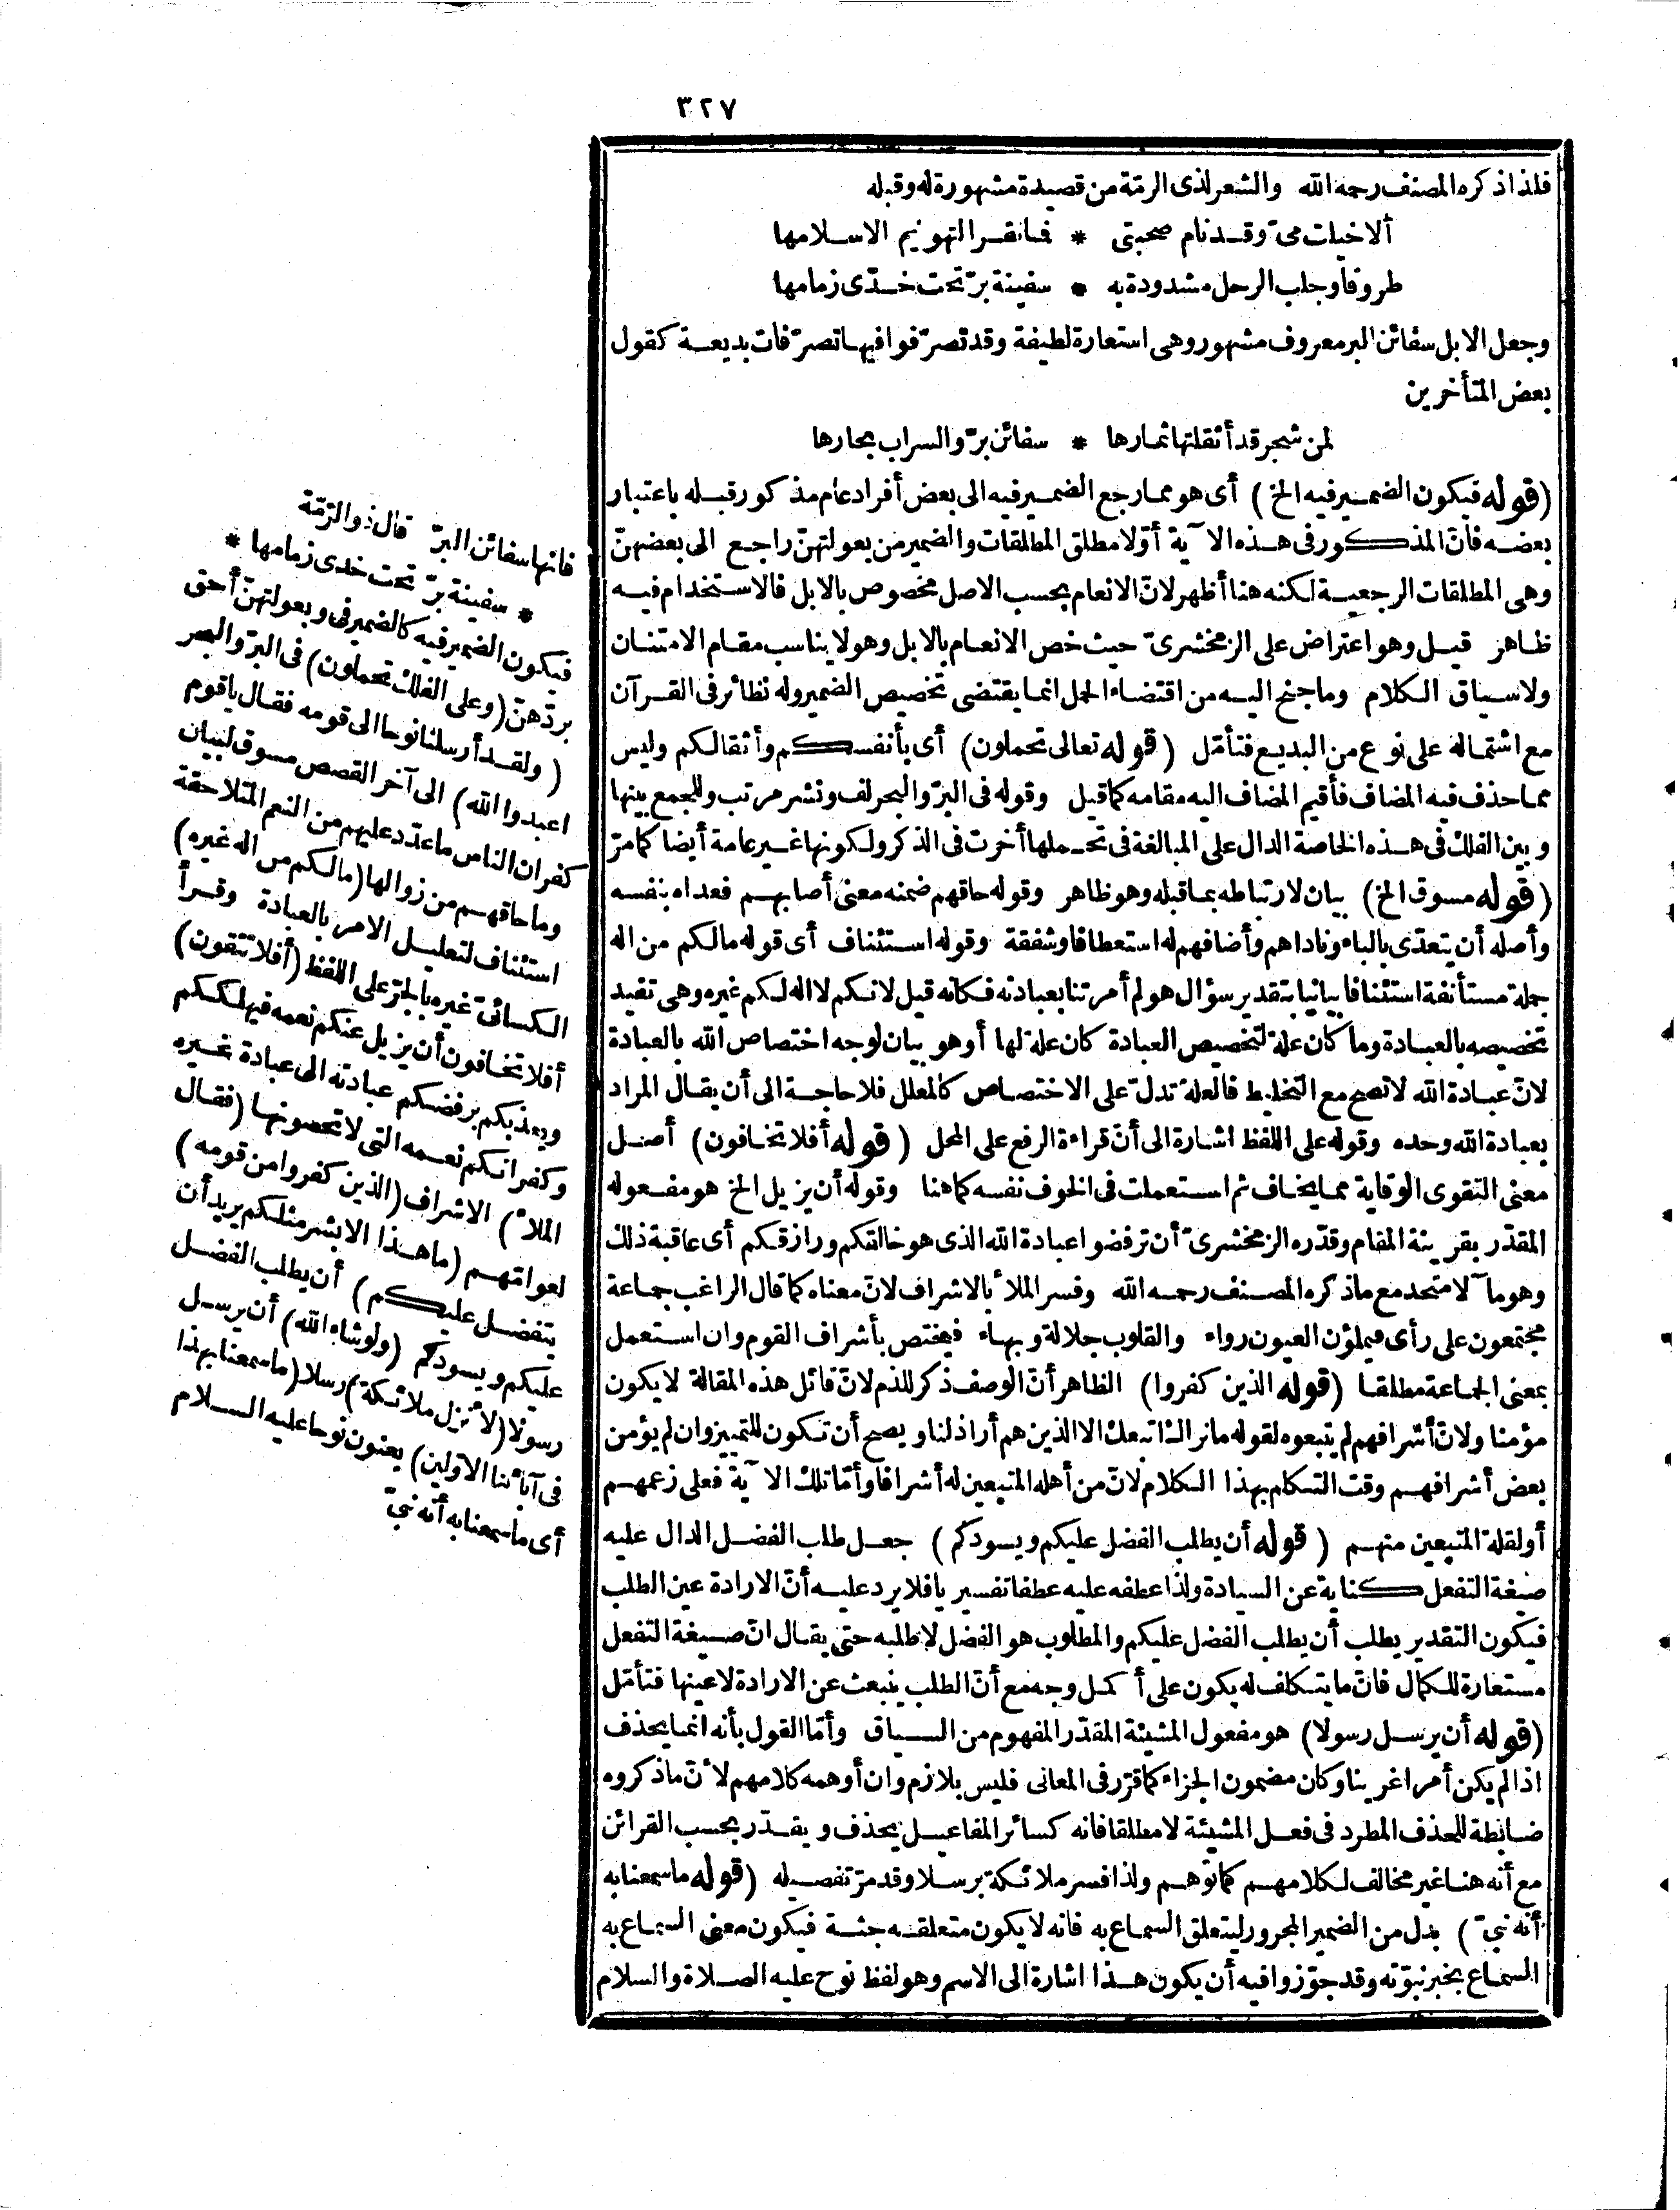 ٣٢٧
فلذا ذكره المصنف رحمه الله والشعر لذى الرمّة من قصيدة مشهورة له وقبله
ألا خيلت مىّ وقد نام صحبتى * فما نفر التهويم الا سلامها
طروقا وجلب الرحل مشدودة به * سفينة برّ تحت خدّى زمامها
وجعل الابل سفائن البر معروف مشهور وهى استعارة لطيفة وقد تصرّفوا فيها تصرّفات بديعة كقول
بعض المتأخرين
لمن شجر قد أثقلتها ثمارها * سفائن برّ والسراب بحارها
(قوله فيكون الضمير فيه الخ) أى هو مما رجع الضمير فيه الى بعض أفراد عام مذكور قبله باعتبار
بعضه فانّ المذكور فى هذه الآية أوّلا مطلق المطلقات والضمير من بعولتهنّ راجع الى بعضهنّ
وهى المطلقات الرجعية لكنه هنا أظهر لانّ الانعام بحسب الاصل مخصوص بالابل فالاستخدام فيه
ظاهر قيل وهو اعتراض على الزمخشرىّ حيث خص الانعام بالابل وهو لا يناسب مقام الامتنان
ولا سياق الكلام وما جنح اليه من اقتضاء الحمل انما يقتضى تخصيص الضمير وله نظائر فى القرآن
مع اشتماله على نوع من البديع فتأمّل (قوله تعالى تحملون) أى بأنفسكم وأثقالكم وليس
مما حذف فيه المضاف فأقيم المضاف اليه مقامه كما قيل وقوله فى البرّ والبحر لف ونشر مرتب وللجمع بينها
وبين الفلك فى هذه الخاصة الدال على المبالغة فى تحملها أخرت فى الذكر ولكونها غير عامة أيضا كما مرّ
(قوله مسوق الخ) بيان لارتباطه بما قبله وهو ظاهر وقوله حاقهم ضمنه معنى أصابهم فعداه بنفسه
وأصله أن يتعدّى بالباء وناداهم وأضافهم له استعطافا وشفقة وقوله استئناف أى قوله مالكم من اله
جملة مستأنفة استئنافا بيانيا بتقدير سؤال هو لم أمرتنا بعبادته فكأنه قيل لانكم لا اله لكم غيره وهى تفيد
تخصيصه بالعبادة وما كان علة لتخصيص العبادة كان علة لها أو هو بيان لوجه اختصاص الله بالعبادة
لانّ عبادة الله لا تصح مع التخليط فالعلة تدلّ على الاختصاص كالمعلل فلا حاجة الى أن يقال المراد
بعبادة الله وحده وقوله على اللفظ اشارة الى أنّ قراءة الرفع على المحل (قوله أفلا تخافون) أصل
معنى التقوى الوقاية مما يخاف ثم استعملت فى الخوف نفسه كما هنا وقوله أن يزيل الخ هو مفعوله
المقدّر بقرينة المقام وقدّره الزمخشرىّ أن ترفضوا عبادة الله الذى هو خالقكم ورازقكم أى عاقبة ذلك
وهو مآلا متحد مع ما ذكره المصنف رحمه الله وفسر الملأ بالاشراف لانّ معناه كما قال الراغب جماعة
مجتمعون على رأى فيملؤن العيون رواء والقلوب جلالة وبهاء فيختص بأشراف القوم وان استعمل
بمعنى الجماعة مطلقا (قوله الذين كفروا) الظاهر أنّ الوصف ذكر للذم لانّ قائل هذه المقالة لا يكون
مؤمنا ولانّ أشرافهم لم يتبعوه لقوله ما نراك اتبعك الا الذين هم أراذلنا ويصح أن تكون للتمييز وان لم يؤمن
بعض أشرافهم وقت التكلم بهذا الكلام لانّ من أهله المتبعين له أشرافا وأمّا تلك الآية فعلى زعمهم
أو لقلة المتبعين منهم (قوله أن يطلب الفضل عليكم ويسودكم) جعل طلب الفضل الدال عليه
صيغة التفعل كناية عن السيادة ولذا عطفه عليه عطفا تفسيريا فلا يرد عليه أنّ الارادة عين الطلب
فيكون التقدير يطلب أن يطلب الفضل عليكم والمطلوب هو الفضل لا طلبه حتى يقال انّ صيغة التفعل
مستعارة للكمال فانّ ما يتكلف له يكون على أكمل وجه مع أنّ الطلب ينبعث عن الارادة لا عينها فتأمّل
(قوله أن يرسل رسولا) هو مفعول المشيئة المقدّر المفهوم من السياق وأمّا القول بأنه انما يحذف
اذا لم يكن أمرا غريبا وكان مضمون الجزاء كما قرّر فى المعانى فليس بلازم وان أوهمه كلامهم لأنّ ما ذكروه
ضابطة للحذف المطرد فى فعل المشيئة لا مطلقا فانه كسائر المفاعيل يحذف ويقدّر بحسب القرائن
مع أنه هنا غير مخالف لكلامهم كما توهم ولذا فسر ملائكة برسلا وقد مرّ تفصيله (قوله ما سمعنا به
أنه نبىّ) بدل من الضمير المجرور ليتعلق السماع به فانه لا يكون متعلقه جثة فيكون معنى السماع به
السماع بخبر نبوّته وقد جوّزوا فيه أن يكون هذا اشارة الى الاسم وهو لفظ نوح عليه الصلاة والسلام
فانها سفائن البرّ قال ذو الرمّة
* سفينة برّ تحت خدى زمامها *
فيكون الضمير فيه كالضمير فى وبعولتهنّ أحق
بردّهنّ (وعلى الفلك تحملون) فى البرّ والبحر
(ولقد أرسلنا نوحا الى قومه فقال ياقوم
اعبدوا الله) الى آخر القصص مسوق لبيان
كفران الناس ما عدّد عليهم من النعم المتلاحقة
وما حاقهم من زوالها (مالكم من اله غيره)
استئناف لتعليل الامر بالعبادة وقرأ
الكسائىّ غيره بالجرّ على اللفظ (أفلا تتقون)
أفلا تخافون أن يزيل عنكم نعمه فيهلككم
ويعذبكم برفضكم عبادته الى عبادة غيره
وكفرانكم نعمه التى لا تحصونها (فقال
الملأ) الاشراف (الذين كفروا من قومه)
لعوامّهم (ما هذا الا بشر مثلكم يريد أن
يتفضل عليكم) أن يطلب الفضل
عليكم ويسودكم (ولو شاء الله) أن يرسل
رسولا (لأنزل ملائكة) رسلا (ما سمعنا بهذا
فى آبائنا الاوّلين) يعنون نوحا عليه السلام
أى ما سمعنا به أنه نبىّ